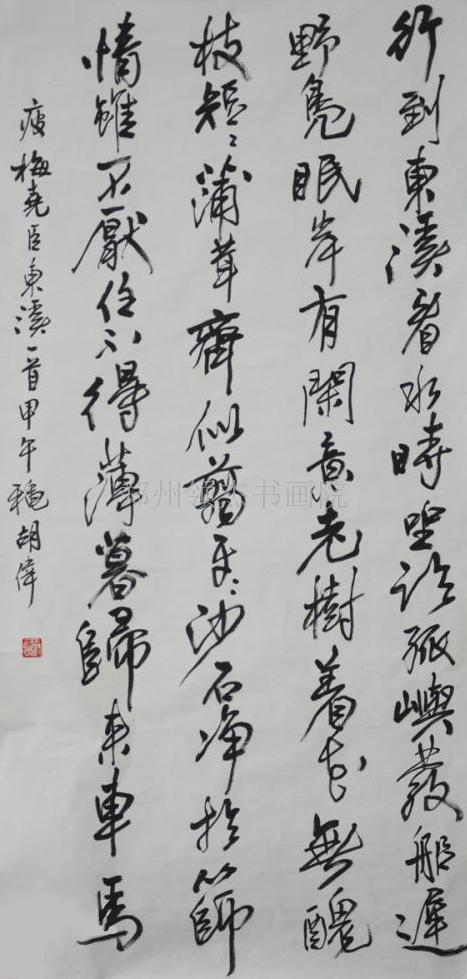 行到東溪看水時坐臨孤嶼發船遲
野鳧眠岸有閑意老樹着花無醜
枝短〻蒲茸齊似翦平〻沙石净於篩
情雖不厭住不得薄暮歸來車馬
疲梅堯臣東溪一首甲午龝胡偉
郑州书画院